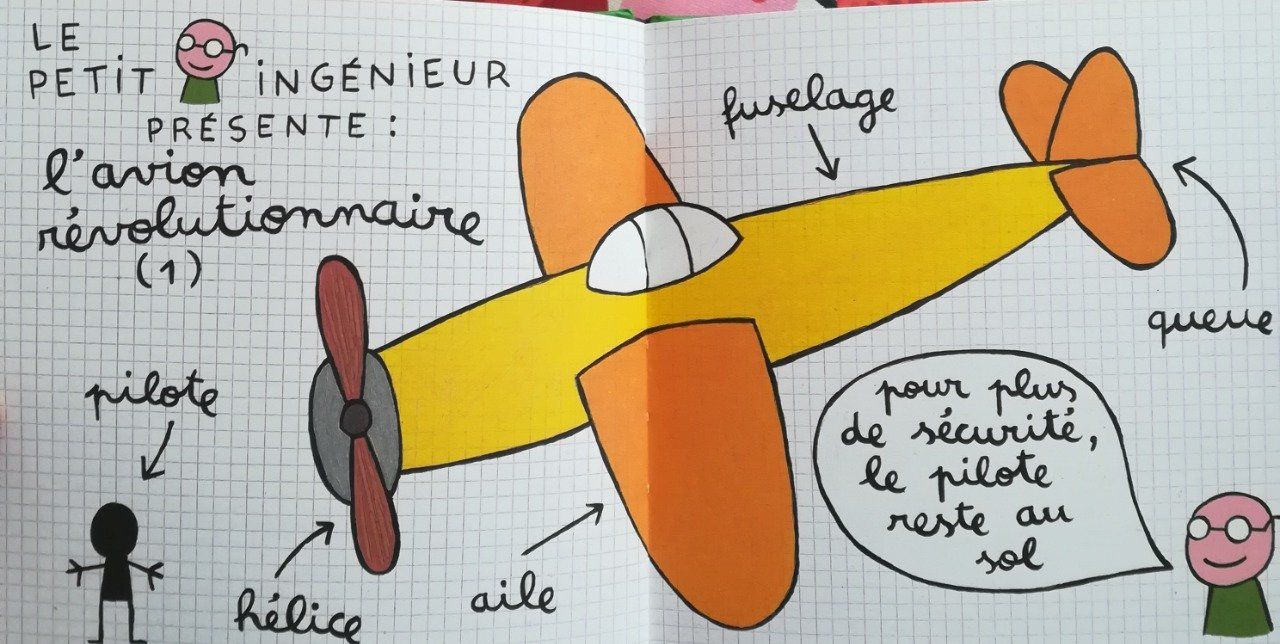 LE
PETIT INGÉNIEUR
PRÉSENTE :
l'avion
révolutionnaire
(1)
fuselage
queue
pilote
hélice
aile
pour plus
de sécurité,
le pilote
reste au
sol